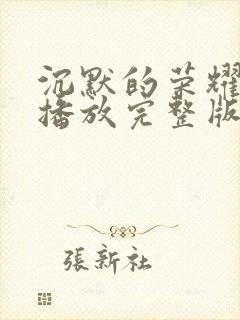 沉默的荣耀
播放完整版
張新社